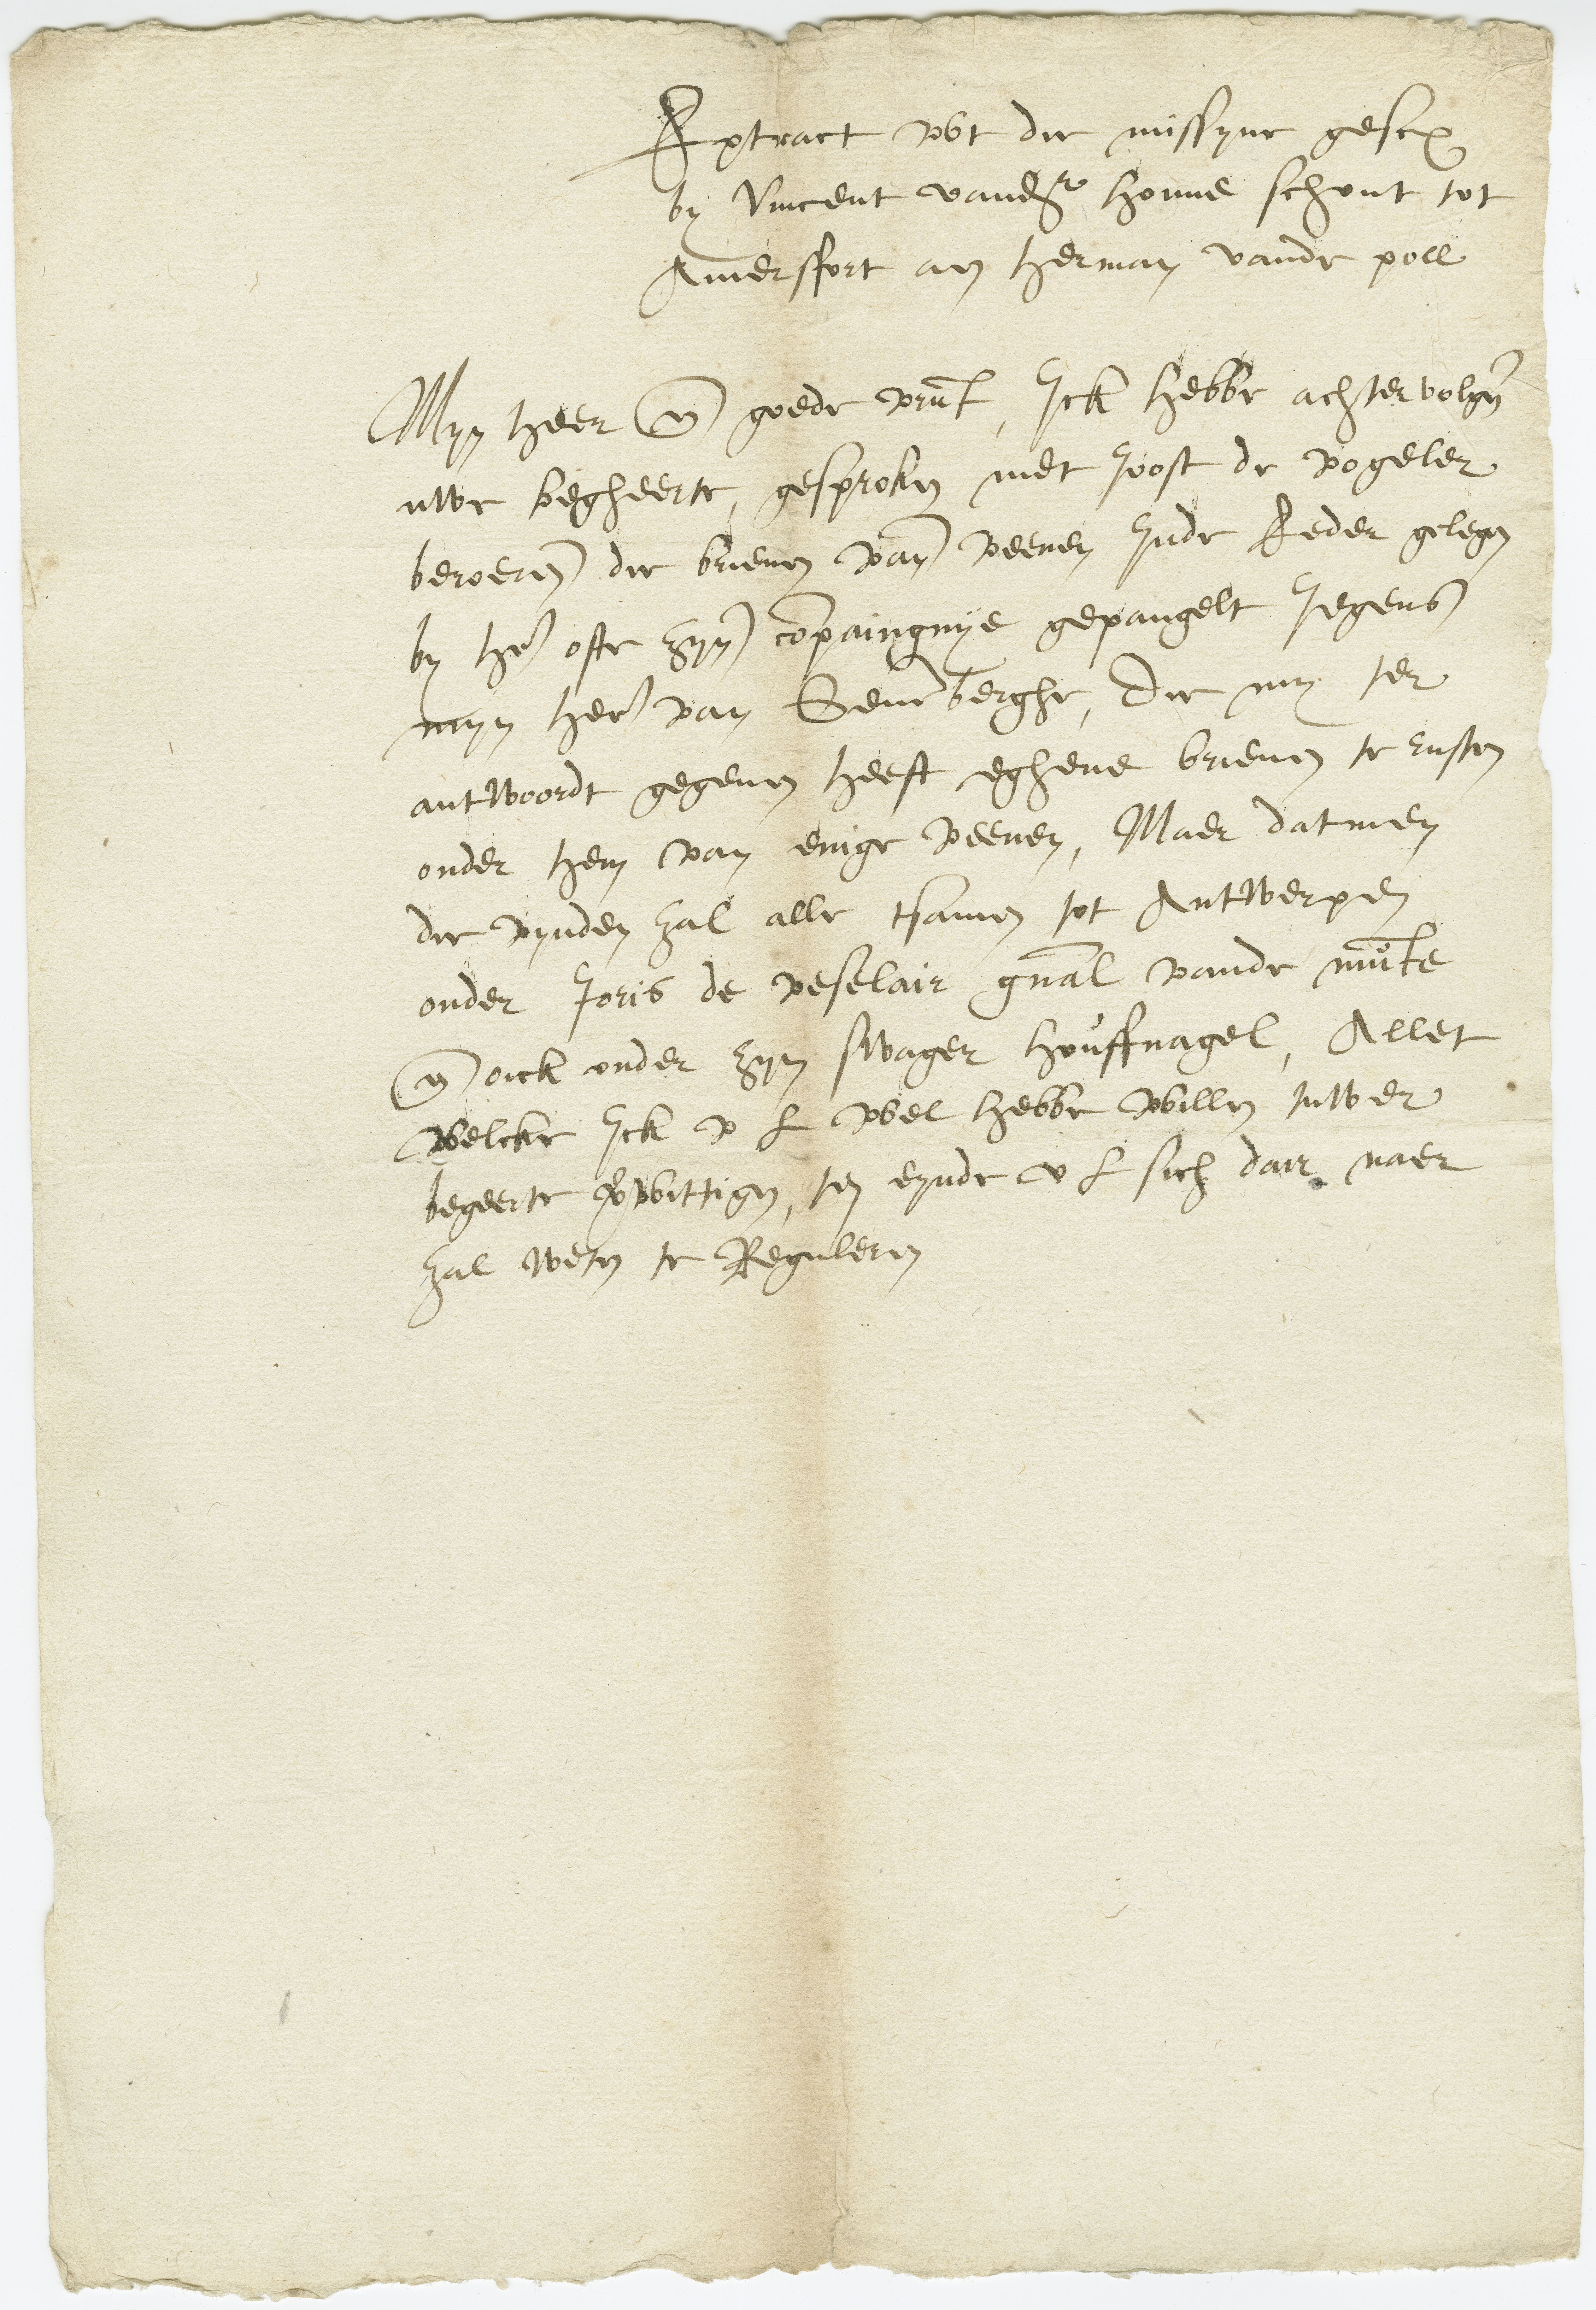 Extract wt die missyue gescr
by Vincent vander houue schout tot
Amersfort an Herman vande poll
Myn heer en goede vrunt, Ick hebbe achtervolgen
uwe begheerte, gesproken met Joost de vogeler
beroeren die brieuen van veenen Inde Reder gelegen
by hem ofte zyn compaingnye gepangelt Jegens
myn heer van Seuenberghe, die my ter
antwoordt gegeuen heeft eghene brieuen te rusten
onder hem van enige veenen, Maer datmen
die vynden zal alle tsamen tot Antwerpen
onder Joris de veselair gnal vande munte
en oick onder zyn swager houffnagel, Allet
welcke Ick v L wel hebbe willen tuwer
begeerte verwittigen, ten eynde v L sich dair naer
zal weten te Reguleren